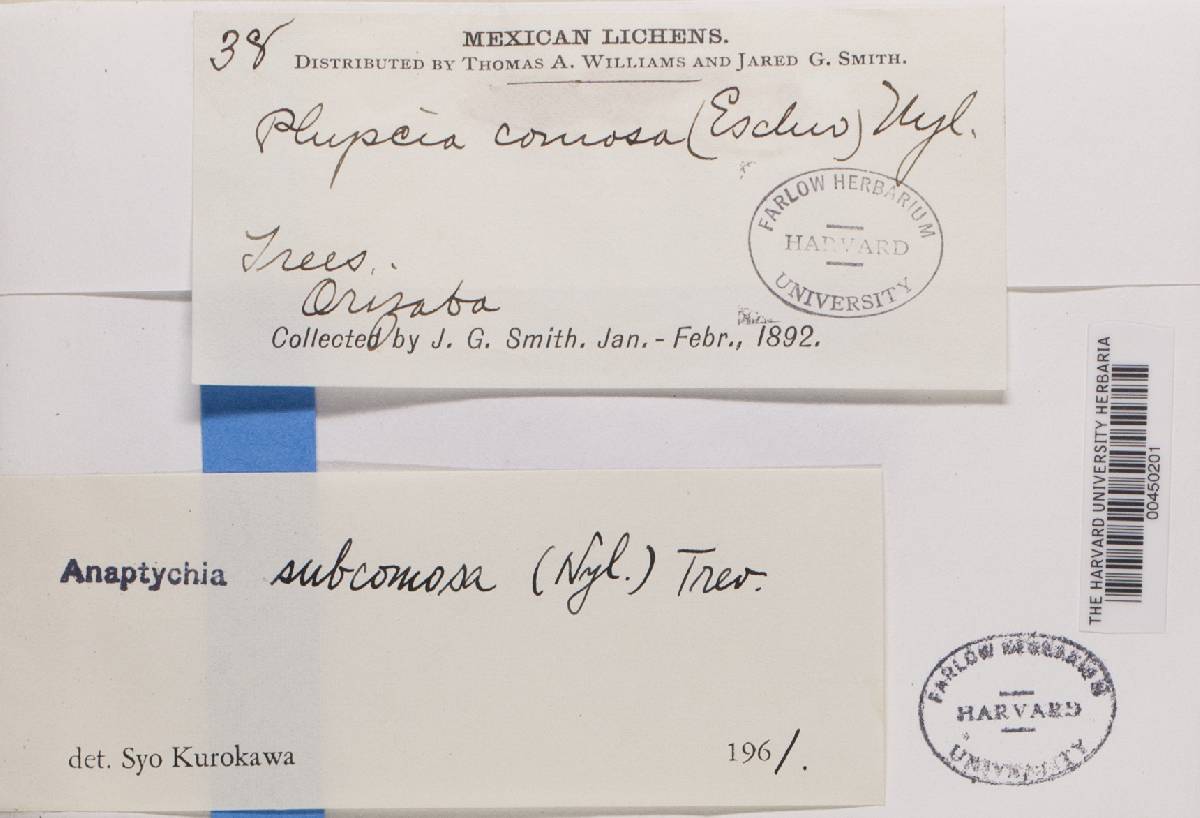 38
MEXICAN LICHENS.
DISTRIBUTED BY THOMAS A. WILLIAMS AND JARED G. SMITH.
Physcia comosa (Eschw) Nyl.
FARLOW HERBARIUM
HARVARD
UNIVERSITY
Trees.
Orizaba
Collected by J. G. Smith. Jan. - Febr., 1892.
THE HARVARD UNIVERSITY HERBARIA
00450201
Anaptychia subcomosa (Nyl.) Trev.
det. Syo Kurokawa 1961.
FARLOW HERBARIUM
HARVARD
UNIVERSITY